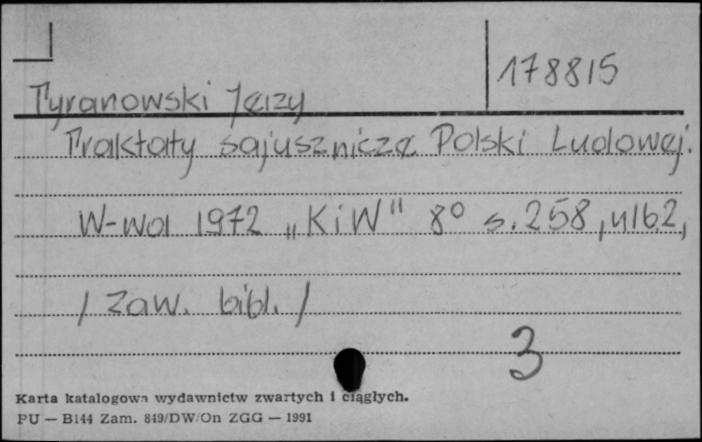 178815
Tyranowski Jerzy
Traktaty sojusznicze Polski Ludowej.
W-wa 1972 „KiW" 8° s. 258, nlb. 2,
/ Zaw. bibl. /
3
Karta katalogowa wydawnictw zwartych i ciągłych.
PU — B144 Zam. 849/DW/On ZGG — 1991